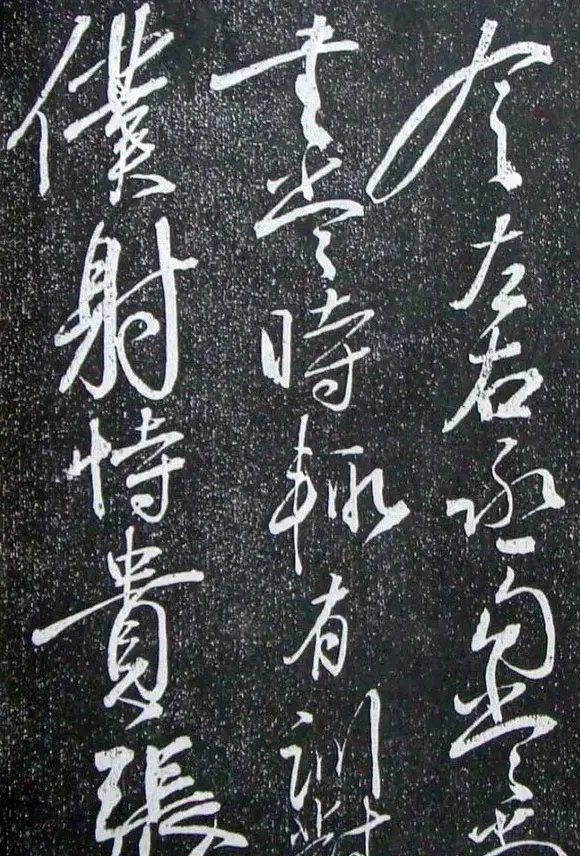 令左右丞勾當尚
書當時輒有訓對
僕射恃貴張